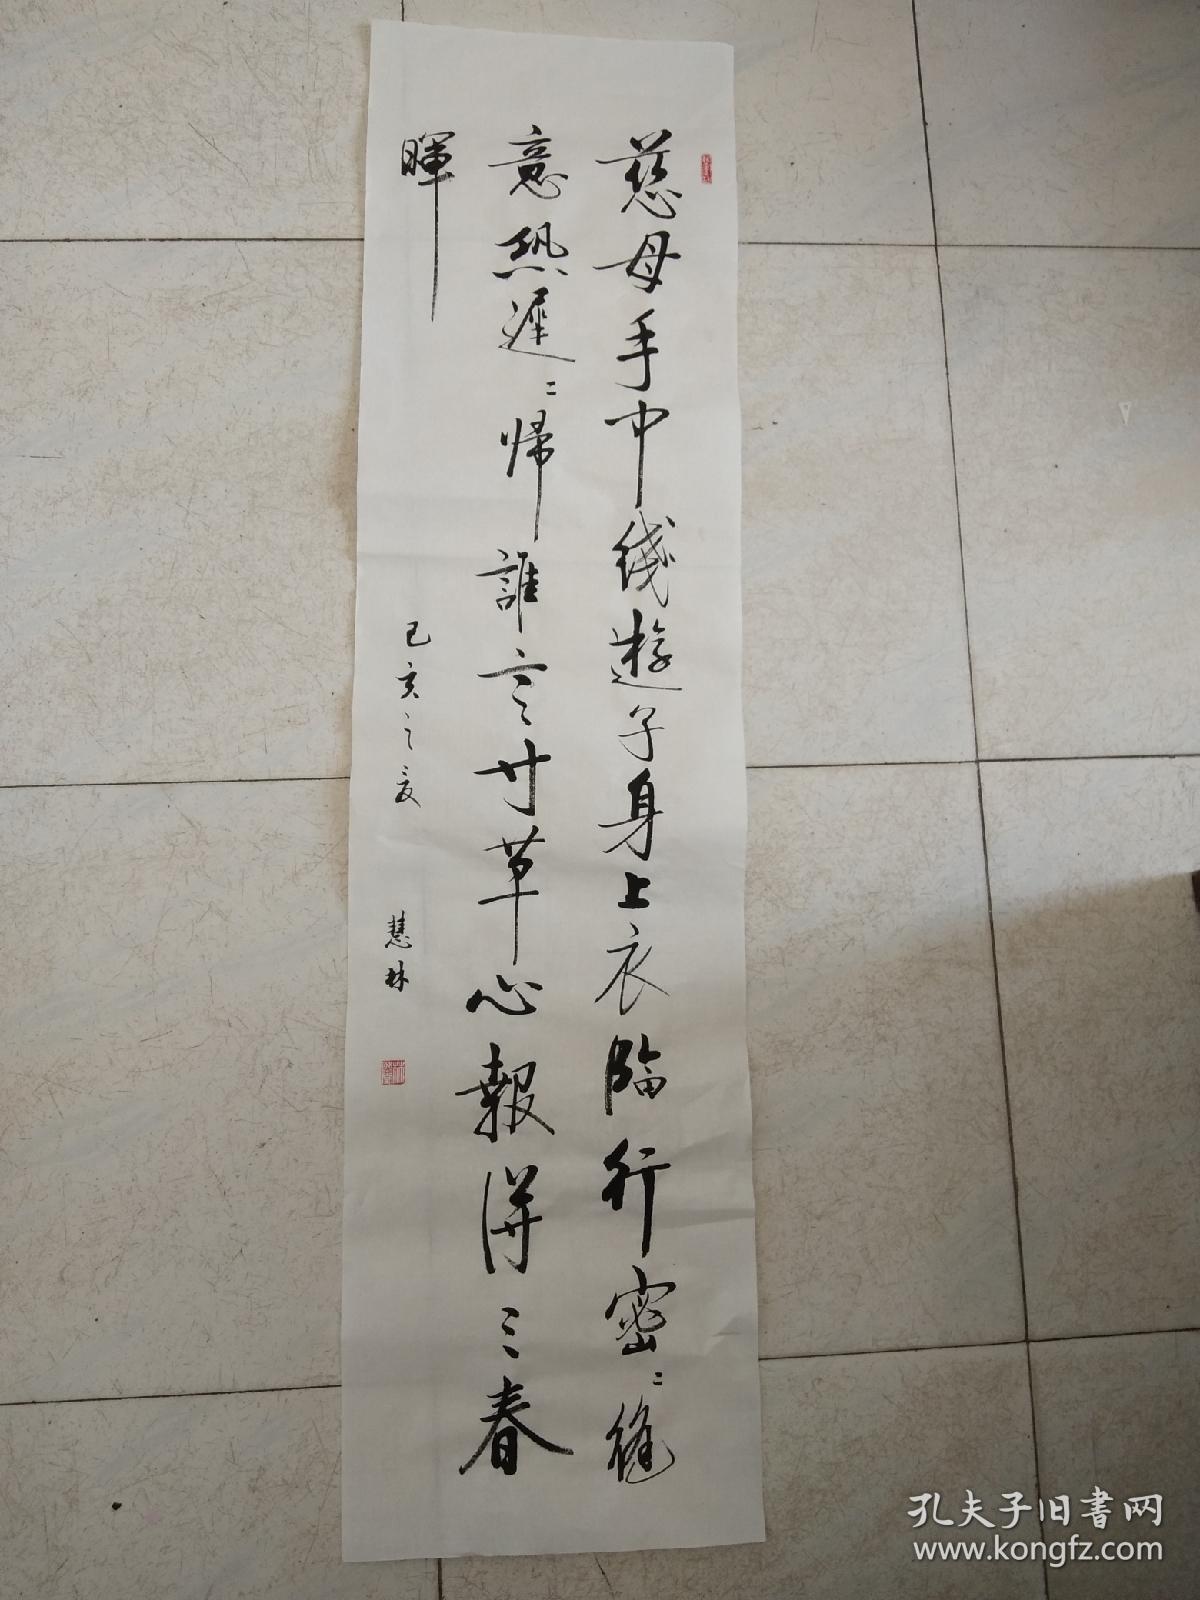 慈母手中线遊子身上衣临行密〻縫
意恐遲〻帰誰言寸草心報得三春
暉
己亥之夏
慧林
孔夫子旧书网
www.kongfz.com